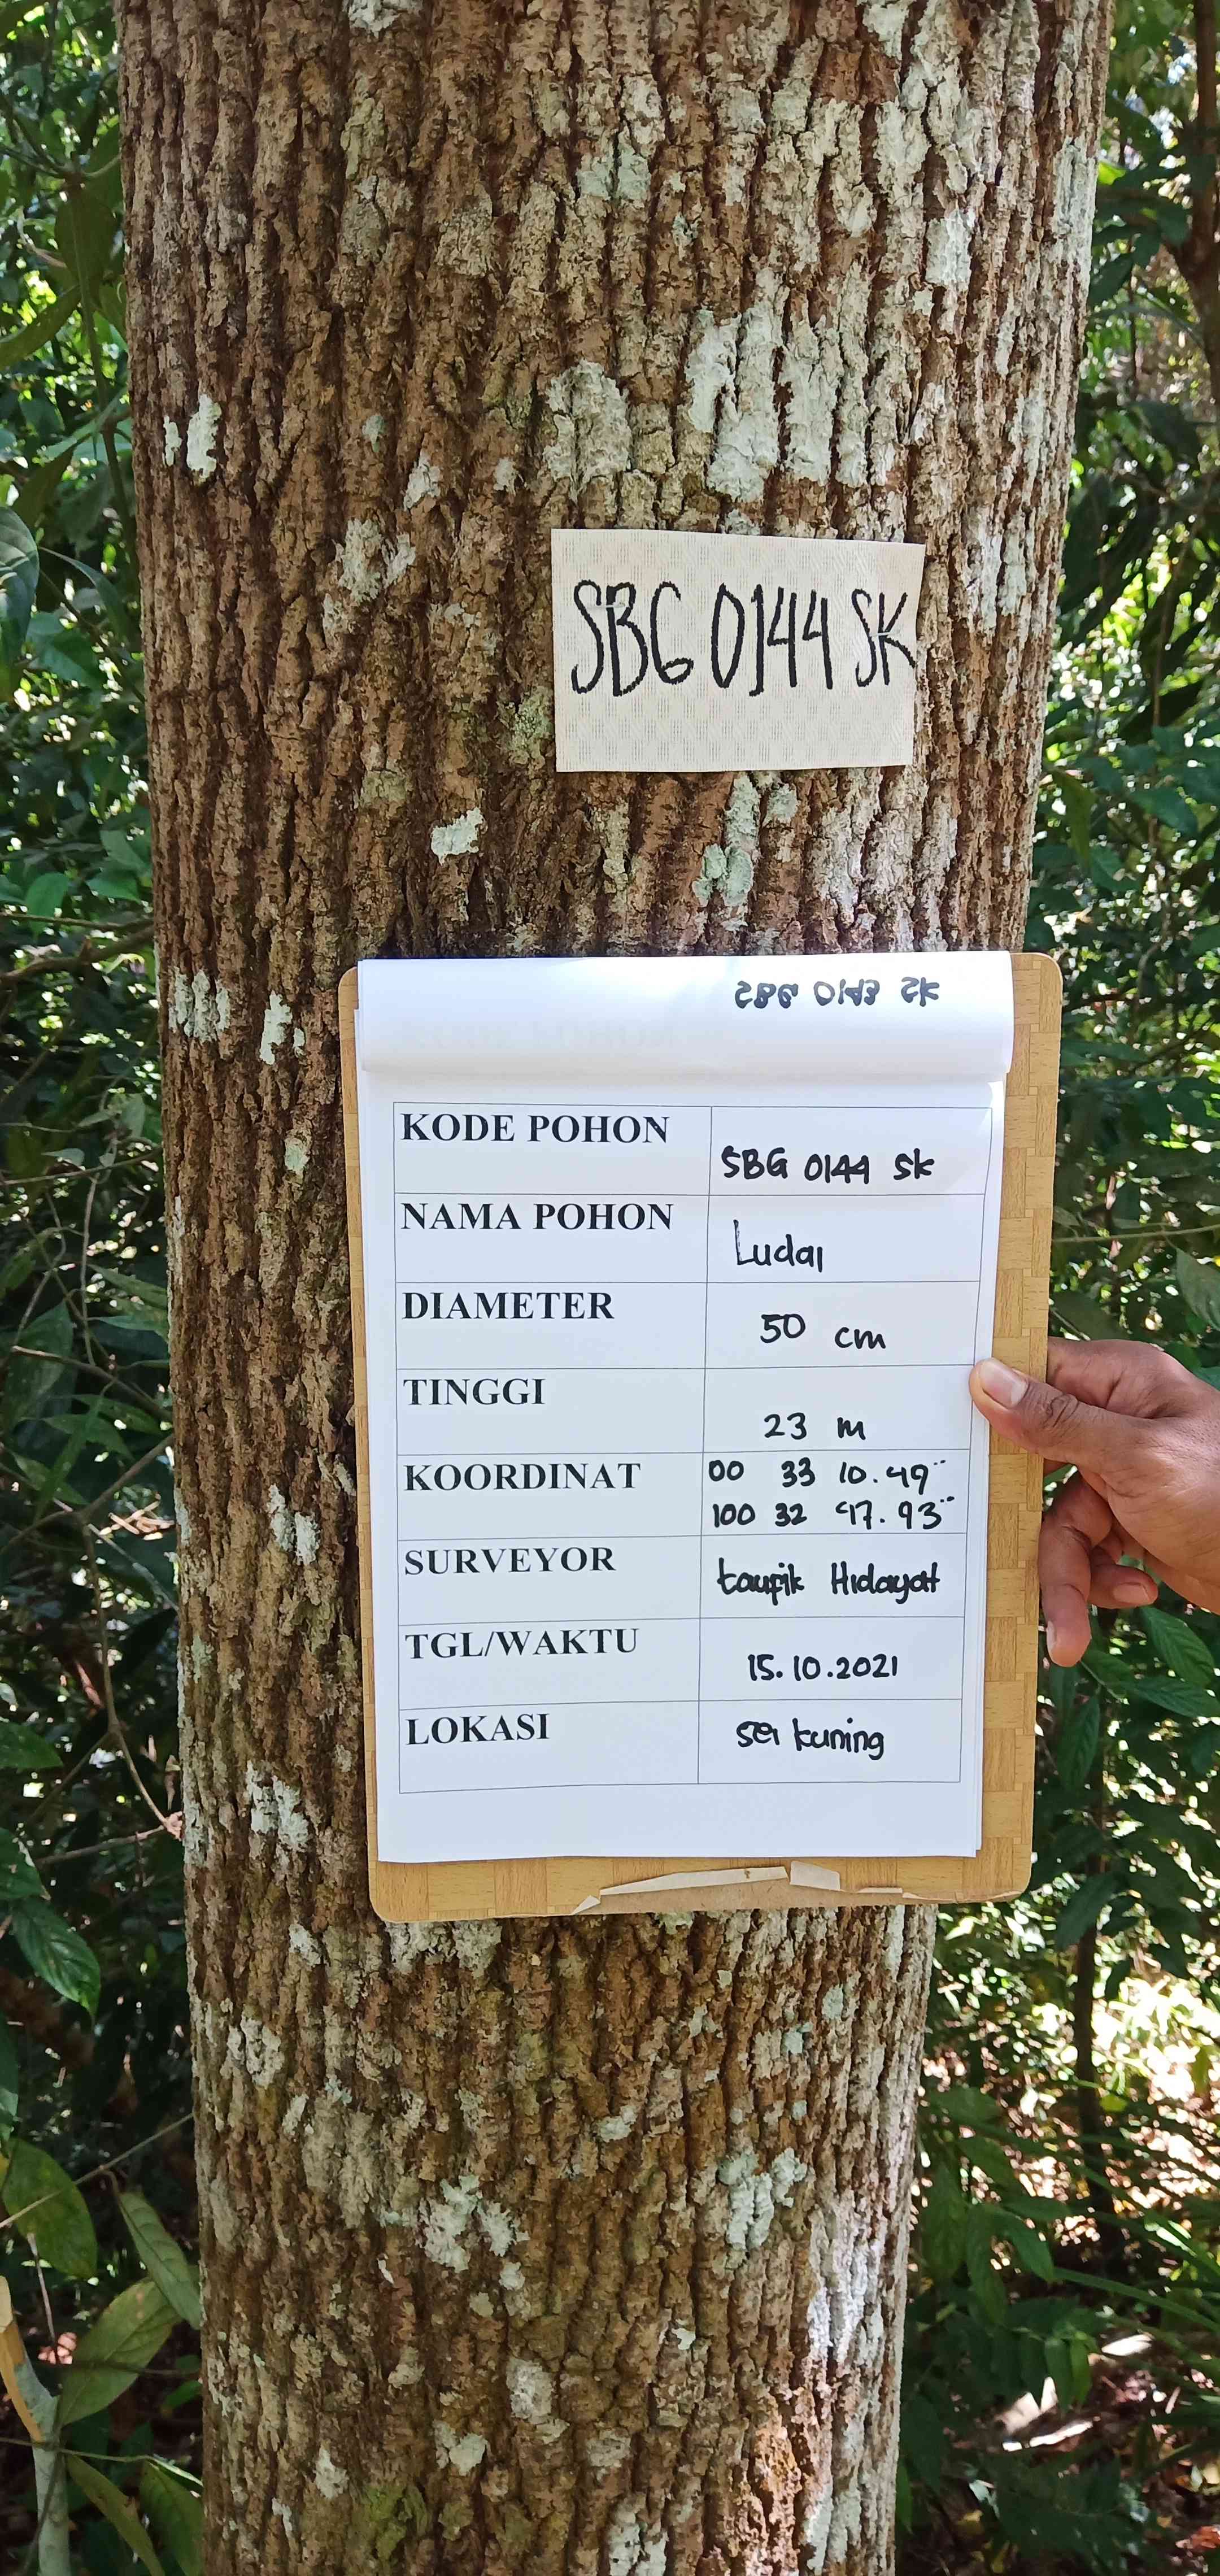 SBG 0144 SK
SBG 0143 SK
KODE POHON SBG 0144 SK
NAMA POHON Ludai
DIAMETER 50 cm
TINGGI 23 m
KOORDINAT 00 33 10.49"
100 32 47.93"
SURVEYOR taufik Hidayat
TGL/WAKTU 15.10.2021
LOKASI sei kuning